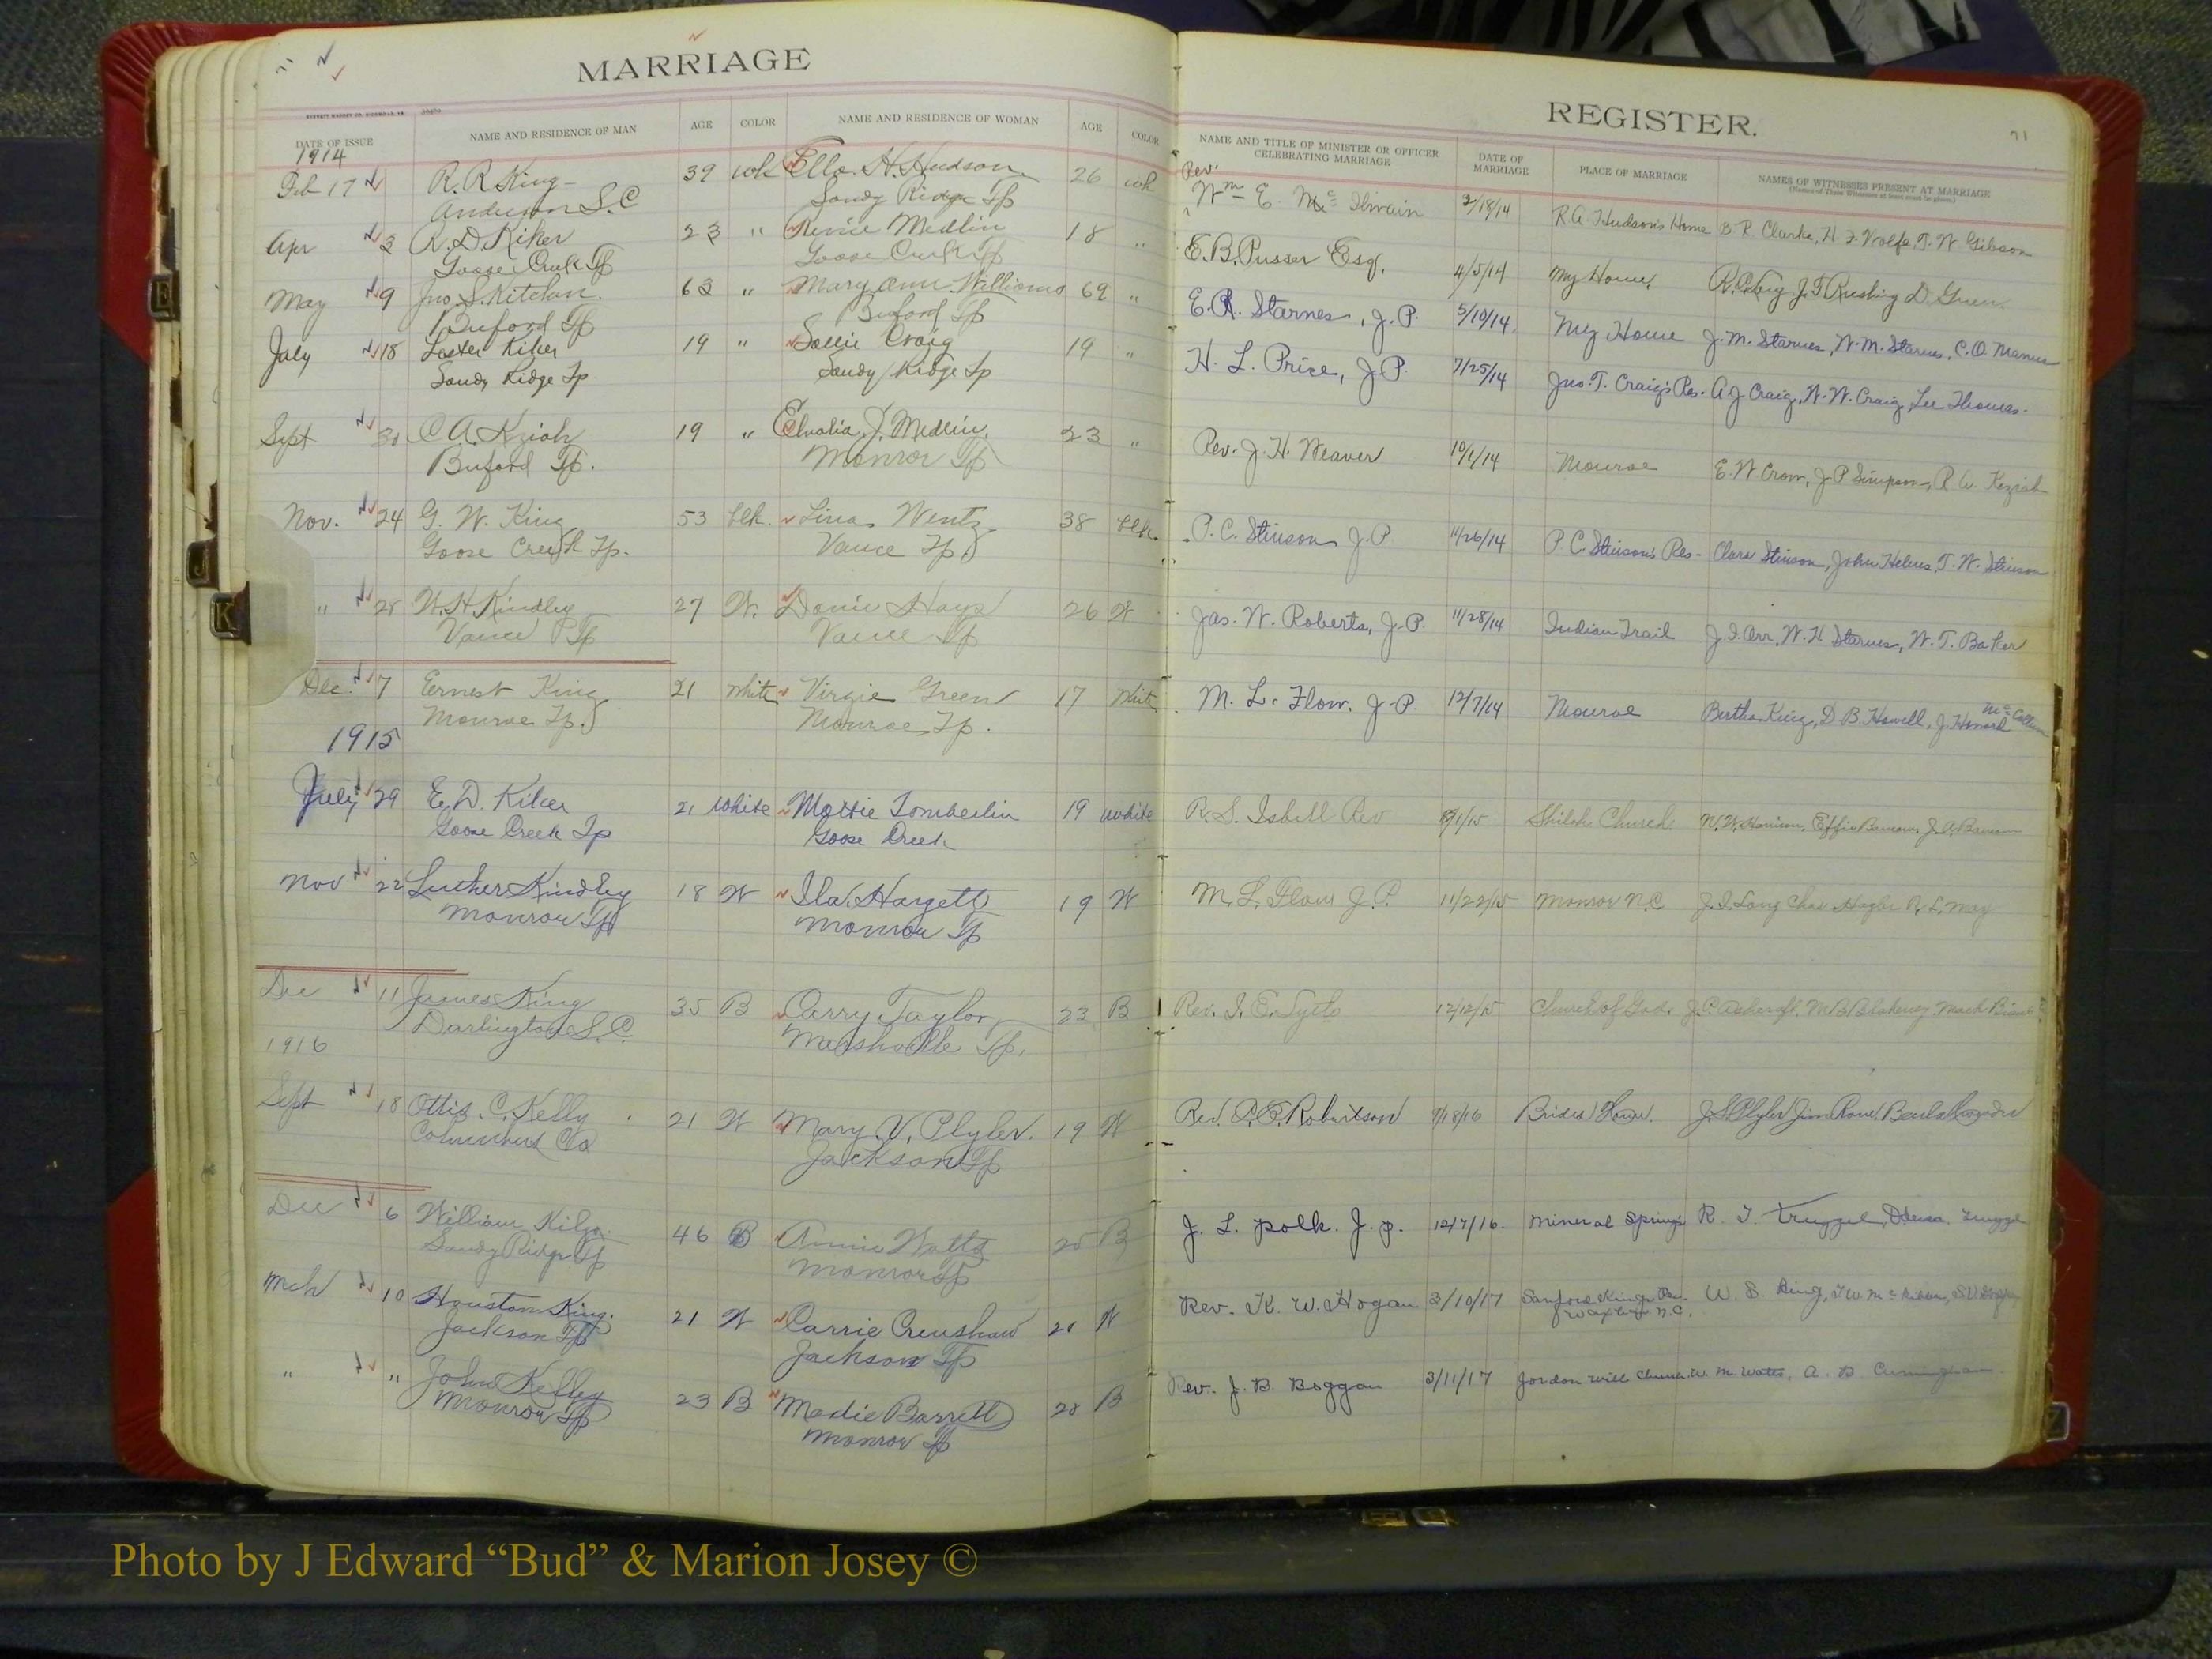 MARRIAGE
REGISTER.
71
DATE OF ISSUE NAME AND RESIDENCE OF MAN AGE COLOR NAME AND RESIDENCE OF WOMAN AGE COLOR NAME AND TITLE OF MINISTER OR OFFICER CELEBRATING MARRIAGE DATE OF MARRIAGE PLACE OF MARRIAGE NAMES OF WITNESSES PRESENT AT MARRIAGE
1914
Feb 17 R. R. King 39 wh Ella H. Hudson 26 wh Rev. Wm E. Mc Ilwain 2/18/14 R. A. Hudson's Home B. R. Clarke, H. F. Wolfe, T. W. Gibson
Anderson S.C Sandy Ridge Tp
Apr 3 R. D. Kiker 23 " Medlin 18 " E. B. Pusser Esq. 4/5/14 My Home
Goose Creek Tp Goose Creek Tp
May 9 Jno. S. Kitchan 63 " Mary Ann Williams 69 " Starnes, J.P. 5/10/14 My Home J. M. Starnes, W. M. Starnes, C. O. Manus
Buford Tp Buford Tp
July 18 Lester Kiker 19 " Sallie Craig 19 " H. L. Price, J.P. 7/25/14 Jno. T. Craig's Res. A J Craig, W. W. Craig, Lee Thomas.
Sandy Ridge Tp Sandy Ridge Tp
Sept C. A. Keziah 19 " Medlin 23 " Rev. J. H. Weaver 10/1/14 Monroe E. W. Crow, J. P. Simpson, Keziah
Buford Tp. Monroe Tp
Nov. 24 G. W. King 53 blk. Lina Wentz 38 blk. P. C. Stinson J.P. 11/26/14 P. C. Stinson's Res- Clara Stinson, John Helms, T. W. Stinson
Goose Creek Tp. Vance Tp
" 28 W. H. Kindley 27 W. Donie Hays 26 W Jas. W. Roberts, J.P. 11/28/14 Indian Trail J. I. Orr, W. H. Starnes, W. T. Baker
Vance Tp Vance Tp
Dec. 7 Ernest King 21 White Virgie Green 17 White M. L. Flow, J.P. 12/7/14 Monroe Bertha King, D. B. Howell, J. Howard McCollum
Monroe Tp. Monroe Tp.
1915
July 29 E. D. Kiker 21 white Mattie Tomberlin 19 white R. S. Isbell Rev 8/1/15 Shiloh Church
Goose Creek Tp Goose Creek
Nov 22 Luther Kindley 18 W Ila Hargett 19 W M. L. Flow J.P. 11/22/15 Monroe N.C
Monroe Tp Monroe Tp
Dec 11 James King 35 B Carry Taylor 23 B Rev. 12/12/15 Church of God
Darlington S.C. Marshville Tp.
1916
Sept 18 Ottis C. Kelly 21 W Mary V. Plyler 19 W Rev. Robertson 9/18/16 Brides Home
Columbus Jackson Tp
Dec 6 William Kilgo 46 B Annie Watts B J. L. polk. J. p. 12/7/16 Mineral Springs
Sandy Ridge Tp Monroe Tp
Mch 10 Houston King 21 W Carrie Crenshaw W Rev. K. W. Hogan 3/10/17 Sanford King Res.
Jackson Tp Jackson Tp Waxhaw N.C.
" " John Kelley 23 B Madie Barrett B Rev. J. B. Boggan 3/11/17 W. M. Watts, A. B. Cunningham
Monroe Tp Monroe Tp
E
J
K
Photo by J Edward “Bud” & Marion Josey ©